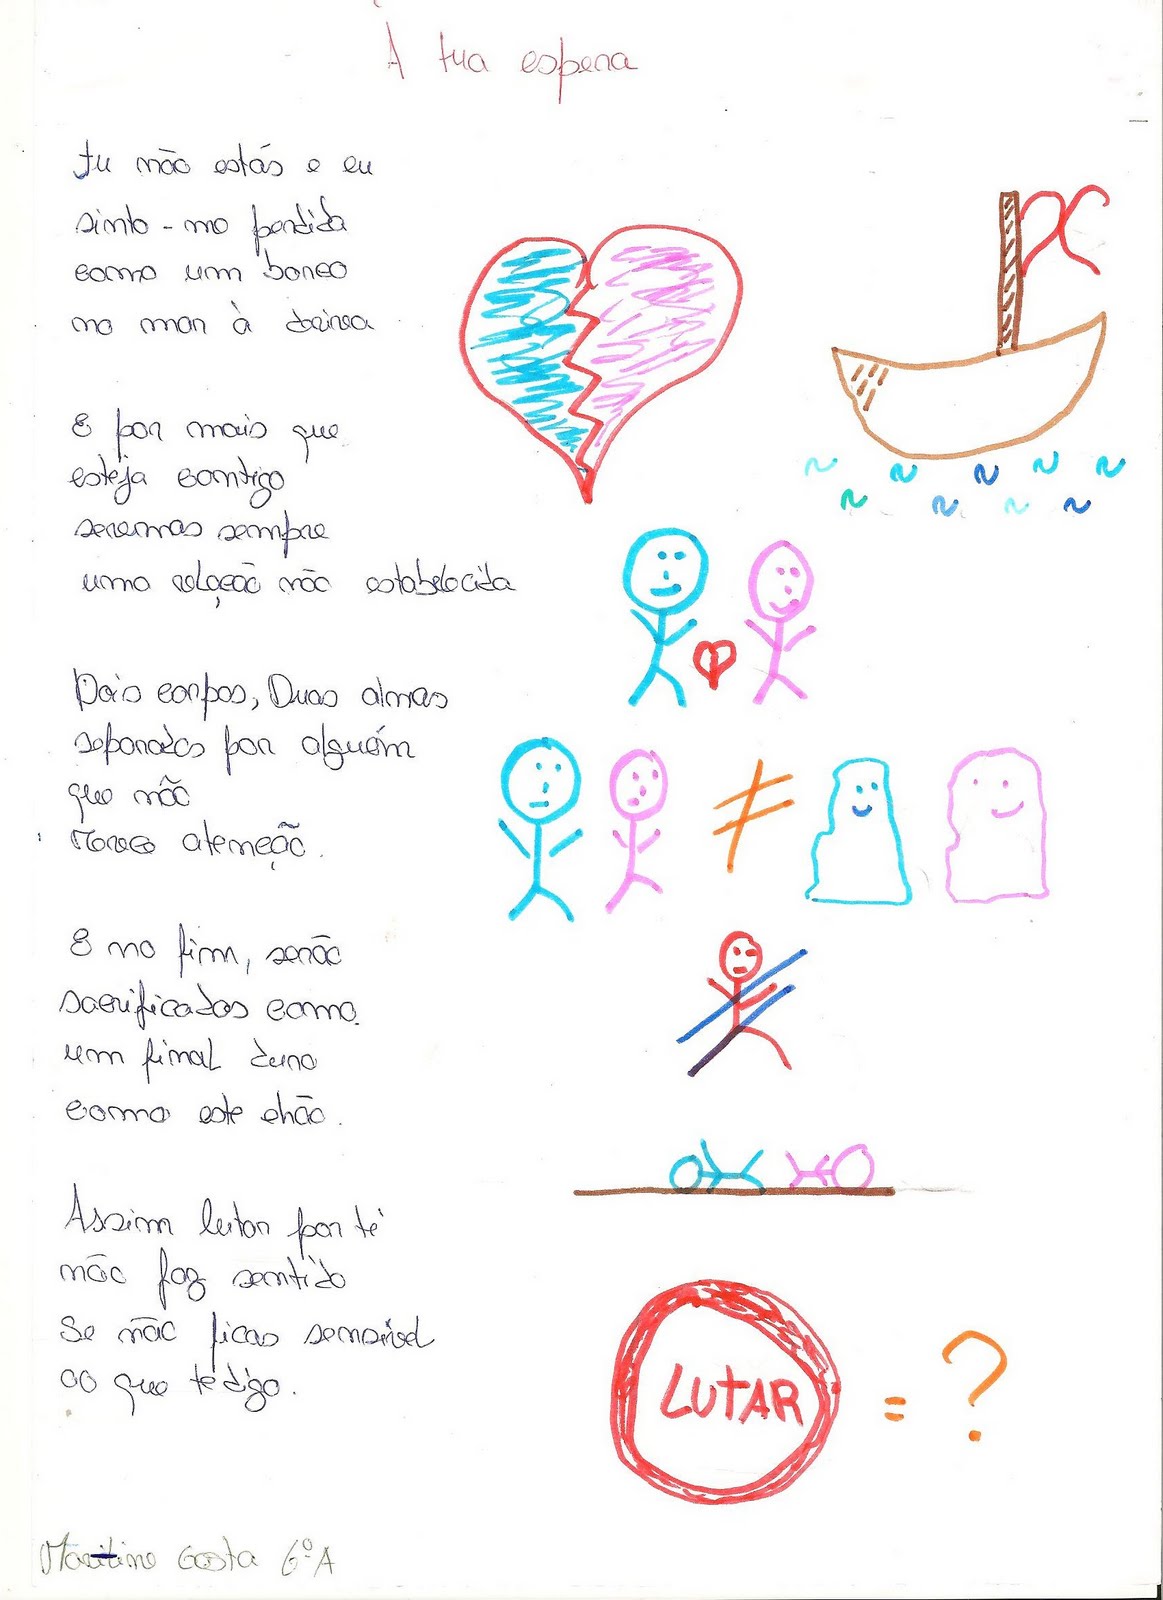 À tua espera
Tu não estás e eu
sinto-me perdida
como um barco
no mar à deriva
E por mais que
esteja contigo
seremos sempre
uma relação não estabelecida
Dois corpos, Duas almas
separados por alguém
que não
merece atenção.
E no fim, serão
sacrificados como
um final duro
como este chão.
Assim leitor por té
não faz sentido
Se não ficas sensível
ao que té digo.
LUTAR = ?
Costa 6ºA